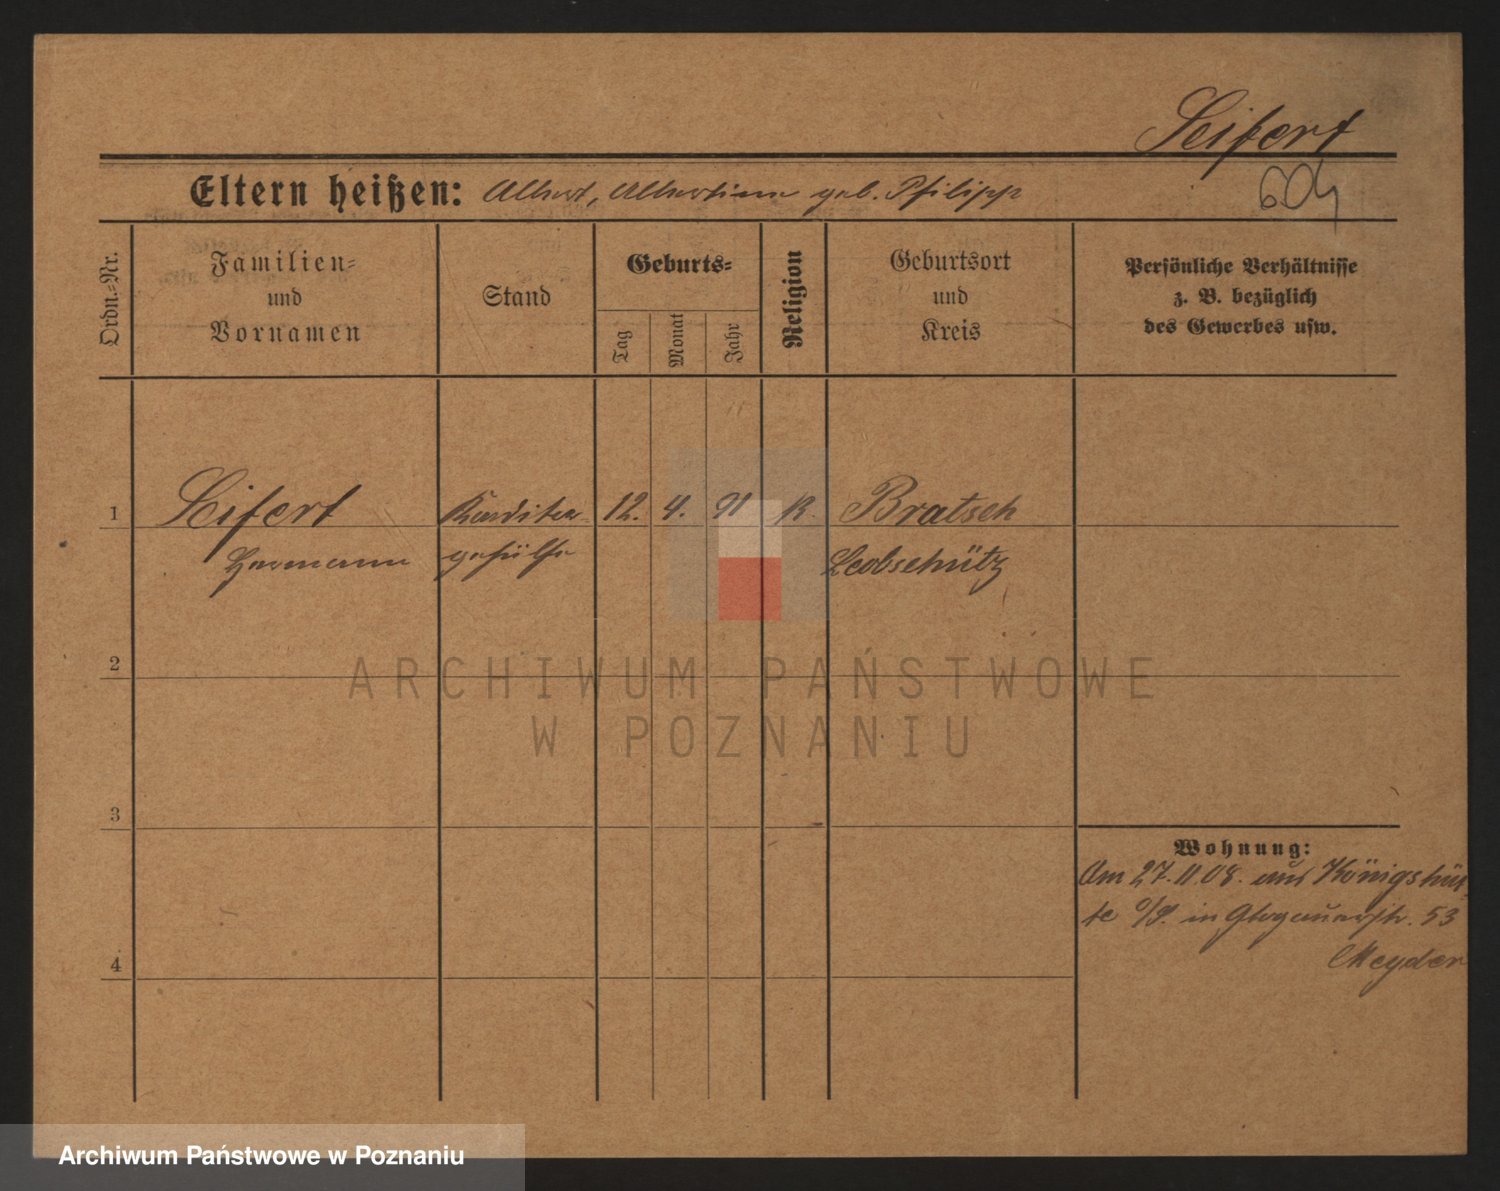 Seifert
Eltern heißen: Albert, Albertine geb. Philipp
Ordn.-Nr.
Familien-
und
Vornamen
Stand
Geburts-
Tag
Monat
Jahr
Religion
Geburtsort
und
Kreis
Persönliche Verhältnisse
z. B. bezüglich
des Gewerbes usw.
1 Seifert 12. 4. 91 k. Bratsch
Hermann gehülfe Leobschütz
ARCHIWUM PAŃSTWOWE
W POZNANIU
2
3
4
Wohnung:
Am 27.11.08. aus Königshüt-
te O/S. in Glogauerstr. 53
Meyder
Archiwum Państwowe w Poznaniu